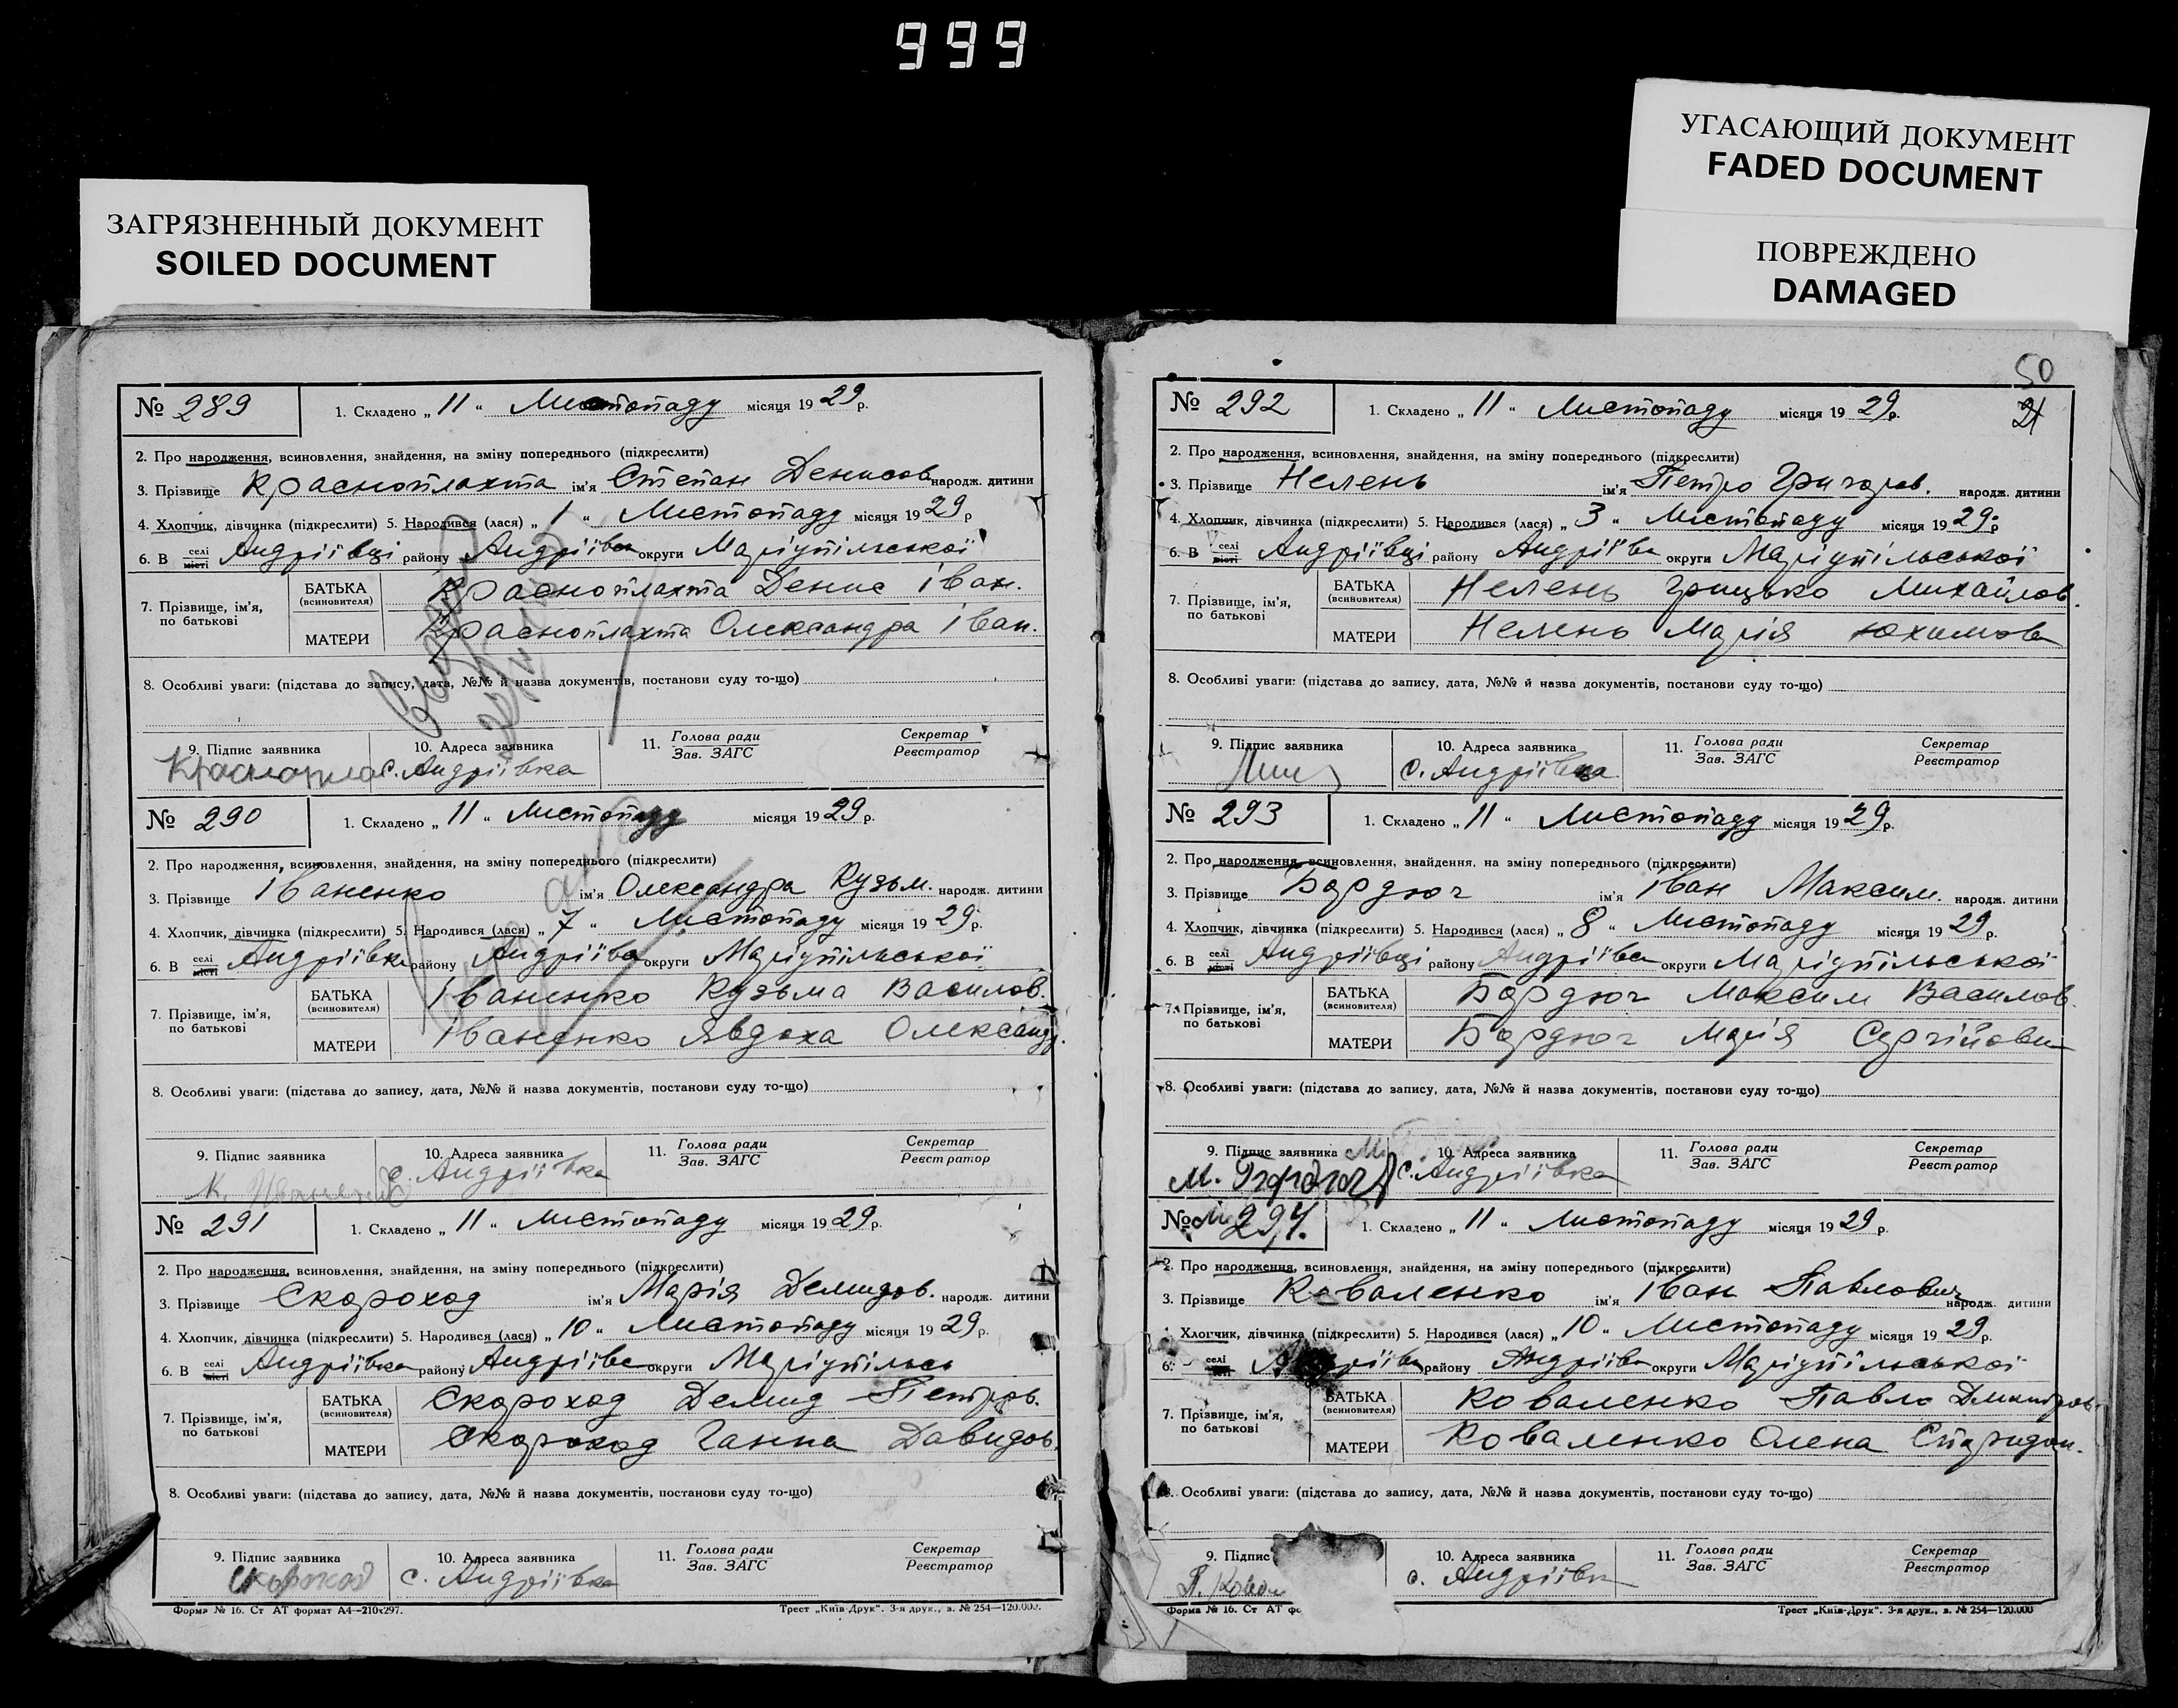 999
УГАСАЮЩИЙ ДОКУМЕНТ
FADED DOCUMENT
ПОВРЕЖДЕНО
DAMAGED
ЗАГРЯЗНЕННЫЙ ДОКУМЕНТ
SOILED DOCUMENT
№ 289
1. Складено „ 11 “ Листопаду місяця 1929 р.
2. Про народження, всиновлення, знайдення, на зміну попереднього (підкреслити)
3. Прізвище Красноплахта ім'я Степан Денисов народж. дитини
4. Хлопчик, дівчинка (підкреслити) 5. Народився (лася) „ 1 “ Листопаду місяця 1929 р
6. В селі місті Андріївці району Андріївсь округи Маріупільської
7. Прізвище, ім'я, по батькові
БАТЬКА (всиновителя) Красноплахта Денис Іван.
МАТЕРИ Красноплахта Олександра Іван.
8. Особливі уваги: (підстава до запису, дата, №№ й назва документів, постанови суду то-що)
9. Підпис заявника
10. Адреса заявника с. Андріївка
11. Голова ради Зав. ЗАГС
Секретар Реєстратор
№ 290
1. Складено „ 11 “ Листопаду місяця 1929 р.
2. Про народження, всиновлення, знайдення, на зміну попереднього (підкреслити)
3. Прізвище Іваненко ім'я Олександра Кузьм. народж. дитини
4. Хлопчик, дівчинка (підкреслити) 5. Народився (лася) „ 7 “ Листопаду місяця 1929 р.
6. В селі місті Андріївка району Андріївсь округи Маріупільської
7. Прізвище, ім'я, по батькові
БАТЬКА (всиновителя) Іваненко Кузьма Василов.
МАТЕРИ Іваненко Явдоха Олександр.
8. Особливі уваги: (підстава до запису, дата, №№ й назва документів, постанови суду то-що)
9. Підпис заявника К. Иваненко
10. Адреса заявника с. Андріївка
11. Голова ради Зав. ЗАГС
Секретар Реєстратор
№ 291
1. Складено „ 11 “ Листопаду місяця 1929 р.
2. Про народження, всиновлення, знайдення, на зміну попереднього (підкреслити)
3. Прізвище Скороход ім'я Марія Демидов. народж. дитини
4. Хлопчик, дівчинка (підкреслити) 5. Народився (лася) „ 10 “ Листопаду місяця 1929 р.
6. В селі місті Андріївка району Андріївсь округи Маріупільсь
7. Прізвище, ім'я, по батькові
БАТЬКА (всиновителя) Скороход Демид Петров.
МАТЕРИ Скороход Ганна Давидов.
8. Особливі уваги: (підстава до запису, дата, №№ й назва документів, постанови суду то-що)
9. Підпис заявника Скороход
10. Адреса заявника с. Андріївка
11. Голова ради Зав. ЗАГС
Секретар Реєстратор
Форма № 16. Ст АТ формат А4—210х297.
Трест „Київ-Друк“. 3-я друк., з. № 254—120.000.
50
№ 292
1. Складено „ 11 “ Листопаду місяця 1929 р.
2. Про народження, всиновлення, знайдення, на зміну попереднього (підкреслити)
3. Прізвище Нелень ім'я Петро Григоров. народж. дитини
4. Хлопчик, дівчинка (підкреслити) 5. Народився (лася) „ 3 “ Листопаду місяця 1929 р
6. В селі місті Андріївці району Андріївсь округи Маріупільської
7. Прізвище, ім'я, по батькові
БАТЬКА (всиновителя) Нелень Грицько Михайлов.
МАТЕРИ Нелень Марія Юхимов
8. Особливі уваги: (підстава до запису, дата, №№ й назва документів, постанови суду то-що)
9. Підпис заявника
10. Адреса заявника с. Андріївка
11. Голова ради Зав. ЗАГС
Секретар Реєстратор
№ 293
1. Складено „ 11 “ Листопаду місяця 1929 р.
2. Про народження, всиновлення, знайдення, на зміну попереднього (підкреслити)
3. Прізвище Бордюг ім'я Іван Максим. народж. дитини
4. Хлопчик, дівчинка (підкреслити) 5. Народився (лася) „ 8 “ Листопаду місяця 1929 р.
6. В селі місті Андріївці району Андріївсь округи Маріупільської
7. Прізвище, ім'я, по батькові
БАТЬКА (всиновителя) Бордюг Максим Василов.
МАТЕРИ Бордюг Марія Сергійовн
8. Особливі уваги: (підстава до запису, дата, №№ й назва документів, постанови суду то-що)
9. Підпис заявника М. Бордюг
10. Адреса заявника с. Андріївка
11. Голова ради Зав. ЗАГС
Секретар Реєстратор
№ 294.
1. Складено „ 11 “ Листопаду місяця 1929 р.
2. Про народження, всиновлення, знайдення, на зміну попереднього (підкреслити)
3. Прізвище Коваленко ім'я Іван Павлович народж. дитини
Хлопчик, дівчинка (підкреслити) 5. Народився (лася) „ 10 “ Листопаду місяця 1929 р.
6. селі району Андріївсь округи Маріупільської
7. Прізвище, ім'я, по батькові
БАТЬКА (всиновителя) Коваленко Павло Дмитров.
МАТЕРИ Коваленко Олена Спиридон.
8. Особливі уваги: (підстава до запису, дата, №№ й назва документів, постанови суду то-що)
9. Підпис
10. Адреса заявника с. Андріївка
11. Голова ради Зав. ЗАГС
Секретар Реєстратор
Форма № 16. Ст АТ фо
Трест „Київ-Друк“. 3-я друк., з. № 254—120.000